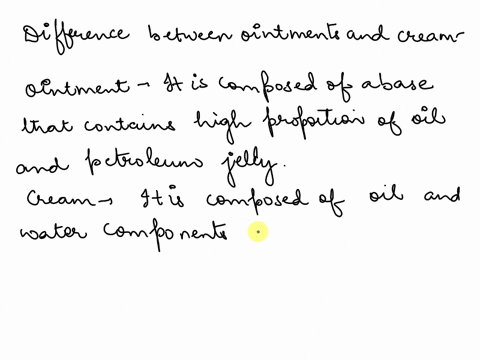 Difference between ointments and cream-
Ointment → It is composed of a base
that contains high proportion of oil
and petroleum jelly.
Cream → It is composed of oil and
water components